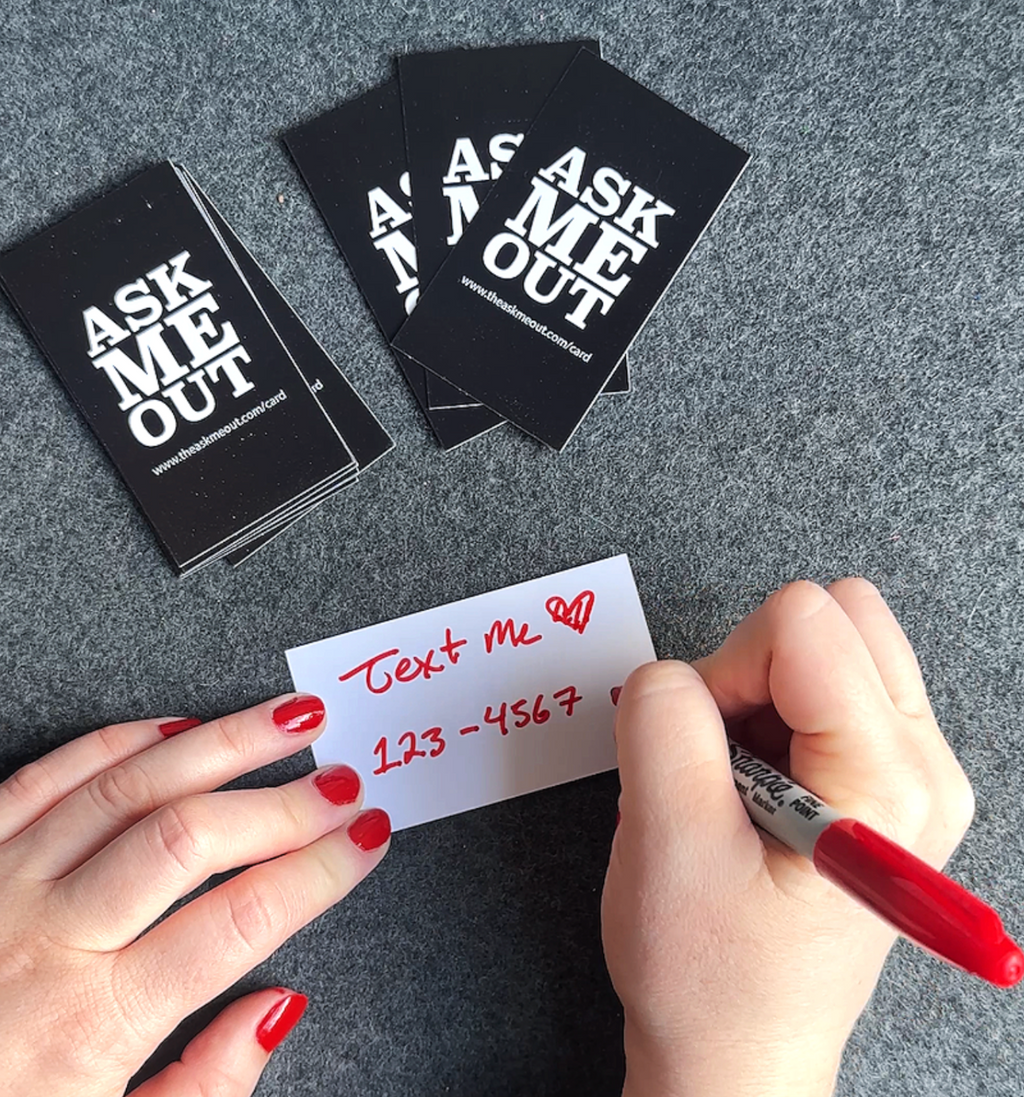 ASK
ME
OUT
www.theaskmeout.com/card
AS
M
AS
M
ASK
ME
OUT
www.theaskmeout.com/card
rd
Text Me
123-4567
Sharpie.
FINE
POINT
Marker